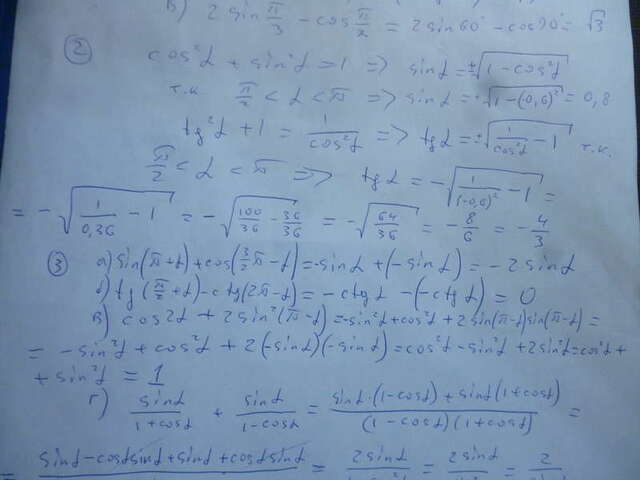 в) 2 sin π/3 - cos π/2 = 2 sin 60° - cos 90° = √3
② cos²α + sin²α = 1 => sin α = ±√(1 - cos²α)
т.к. π/2 < α < π => sin α = √(1-(-0,6)²) = 0,8
tg²α + 1 = 1/cos²α => tg α = ±√(1/cos²α - 1) т.к.
π/2 < α < π => tg α = -√(1/(-0,6)² - 1) =
= -√(1/0,36 - 1) = -√(100/36 - 36/36) = -√(64/36) = -8/6 = -4/3
③ а) sin(π+α) + cos(3/2π - α) = -sin α + (-sin α) = -2 sin α
б) tg(π/2 + α) - ctg(2π - α) = -ctg α - (-ctg α) = 0
в) cos 2α + 2 sin²(π - α) = -sin²α + cos²α + 2 sin(π-α) sin(π-α) =
= -sin²α + cos²α + 2(-sin α)(-sin α) = cos²α - sin²α + 2 sin²α = cos²α +
+ sin²α = 1
г) sin α/(1+cos α) + sin α/(1-cos α) = (sin α·(1-cos α) + sin α(1+cos α))/((1-cos α)(1+cos α)) =
= sin α - cos α sin α + sin α + cos α sin α = 2 sin α = 2 sin α = 2